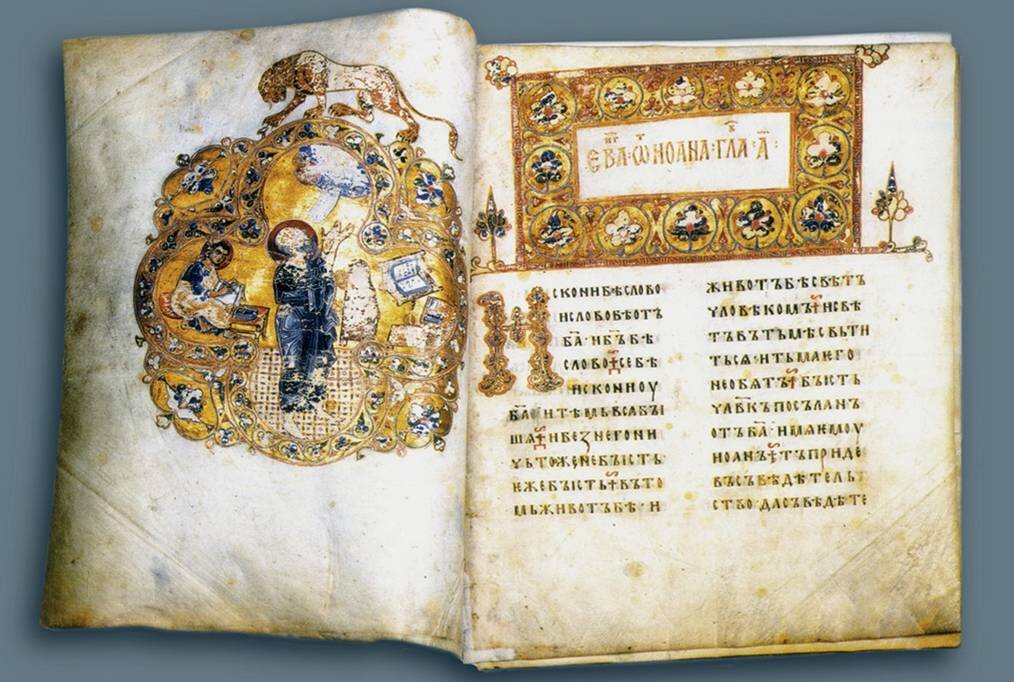 ЕВА·Ѿ ИОАНА·ГЛА·А҃·
Искони бѣ слово
и слово бѣ отъ
б҃а· и б҃ъ бѣ
слово· се бѣ
искони оу
б҃а· и тѣмь вса бы
шѧ· и без него ни
чьтоже не бысть·
еже бысть· въ то
мь животъ бѣ· и
животъ бѣ свѣтъ
чловѣкомъ· и свѣ
тъ въ тьмѣ свьти
тьсѧ· и тьма его
не обятъ· бысть
чл҃вкъ посъланъ
отъ б҃а· имя емоу
иоанъ· тъ приде
въ съвѣдѣтельт
ство да съвѣдѣте